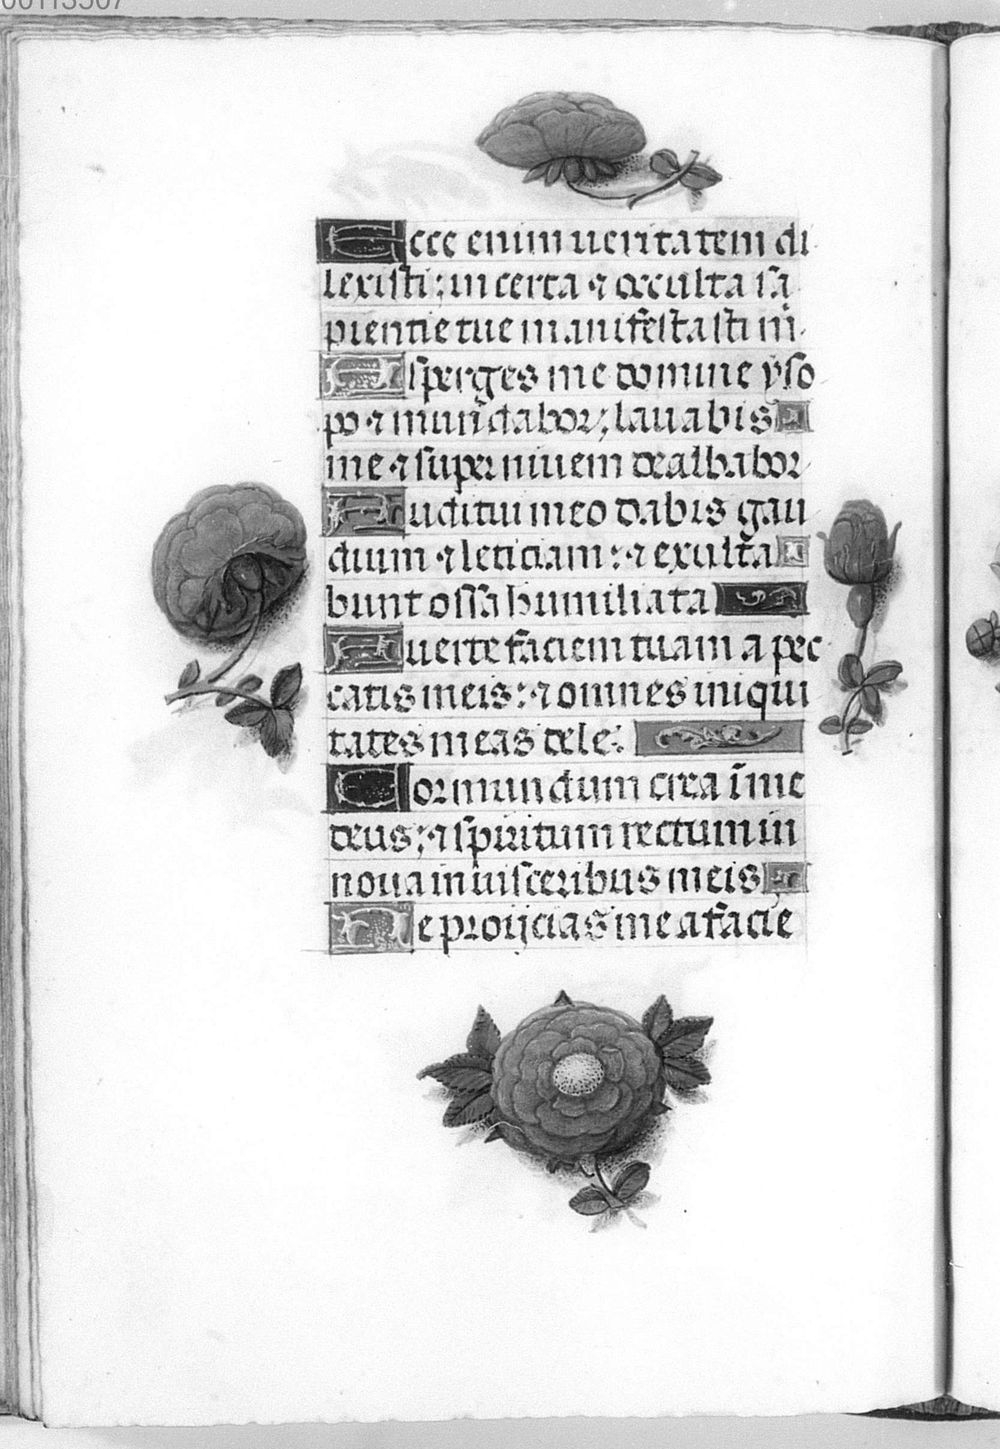 00113507
Ecce enim ueritatem di
lexisti: incerta ⁊ occulta sa
pientie tue manifestasti m̄.
Asperges me domine yso
po ⁊ mundabor: lauabis
me ⁊ super niuem dealbabor
Auditui meo dabis gau
dium ⁊ leticiam: ⁊ exulta
bunt ossa humiliata
Auerte faciem tuam a pec
catis meis: ⁊ omnes iniqui
tates meas dele.
Cor mundum crea ī me
deus: ⁊ spiritum rectum in
noua in uisceribus meis
Ne proijcias me a facie